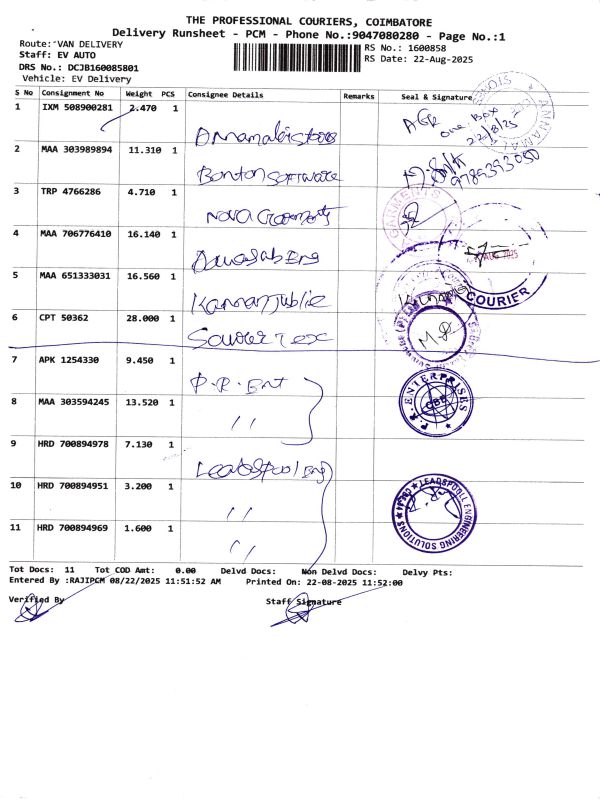 THE PROFESSIONAL COURIERS, COIMBATORE
Delivery Runsheet - PCM - Phone No.:9047080280 - Page No.:1
Route: VAN DELIVERY
Staff: EV AUTO
DRS No.: DCJB160085801
Vehicle: EV Delivery
RS No.: 1600858
RS Date: 22-Aug-2025
S No Consignment No Weight PCS Consignee Details Remarks Seal & Signature
1 IXM 508900281 2.470 1
One Box
22/8/25
2 MAA 303989894 11.310 1 Bonton Software
9789393050
3 TRP 4766286 4.710 1 Nova Garments
GARMENTS
4 MAA 706776410 16.140 1
5 MAA 651333031 16.560 1
COURIER
6 CPT 50362 28.000 1
7 APK 1254330 9.450 1 P.R. Ent
P.R. ENTERPRISES
CBE
8 MAA 303594245 13.520 1 "
9 HRD 700894978 7.130 1
10 HRD 700894951 3.200 1 "
LEADSPOOLL ENGINEERING SOLUTIONS
11 HRD 700894969 1.600 1 "
Tot Docs: 11 Tot COD Amt: 0.00 Delvd Docs: Non Delvd Docs: Delvy Pts:
Entered By :RAJIPCM 08/22/2025 11:51:52 AM Printed On: 22-08-2025 11:52:00
Verified By Staff Signature